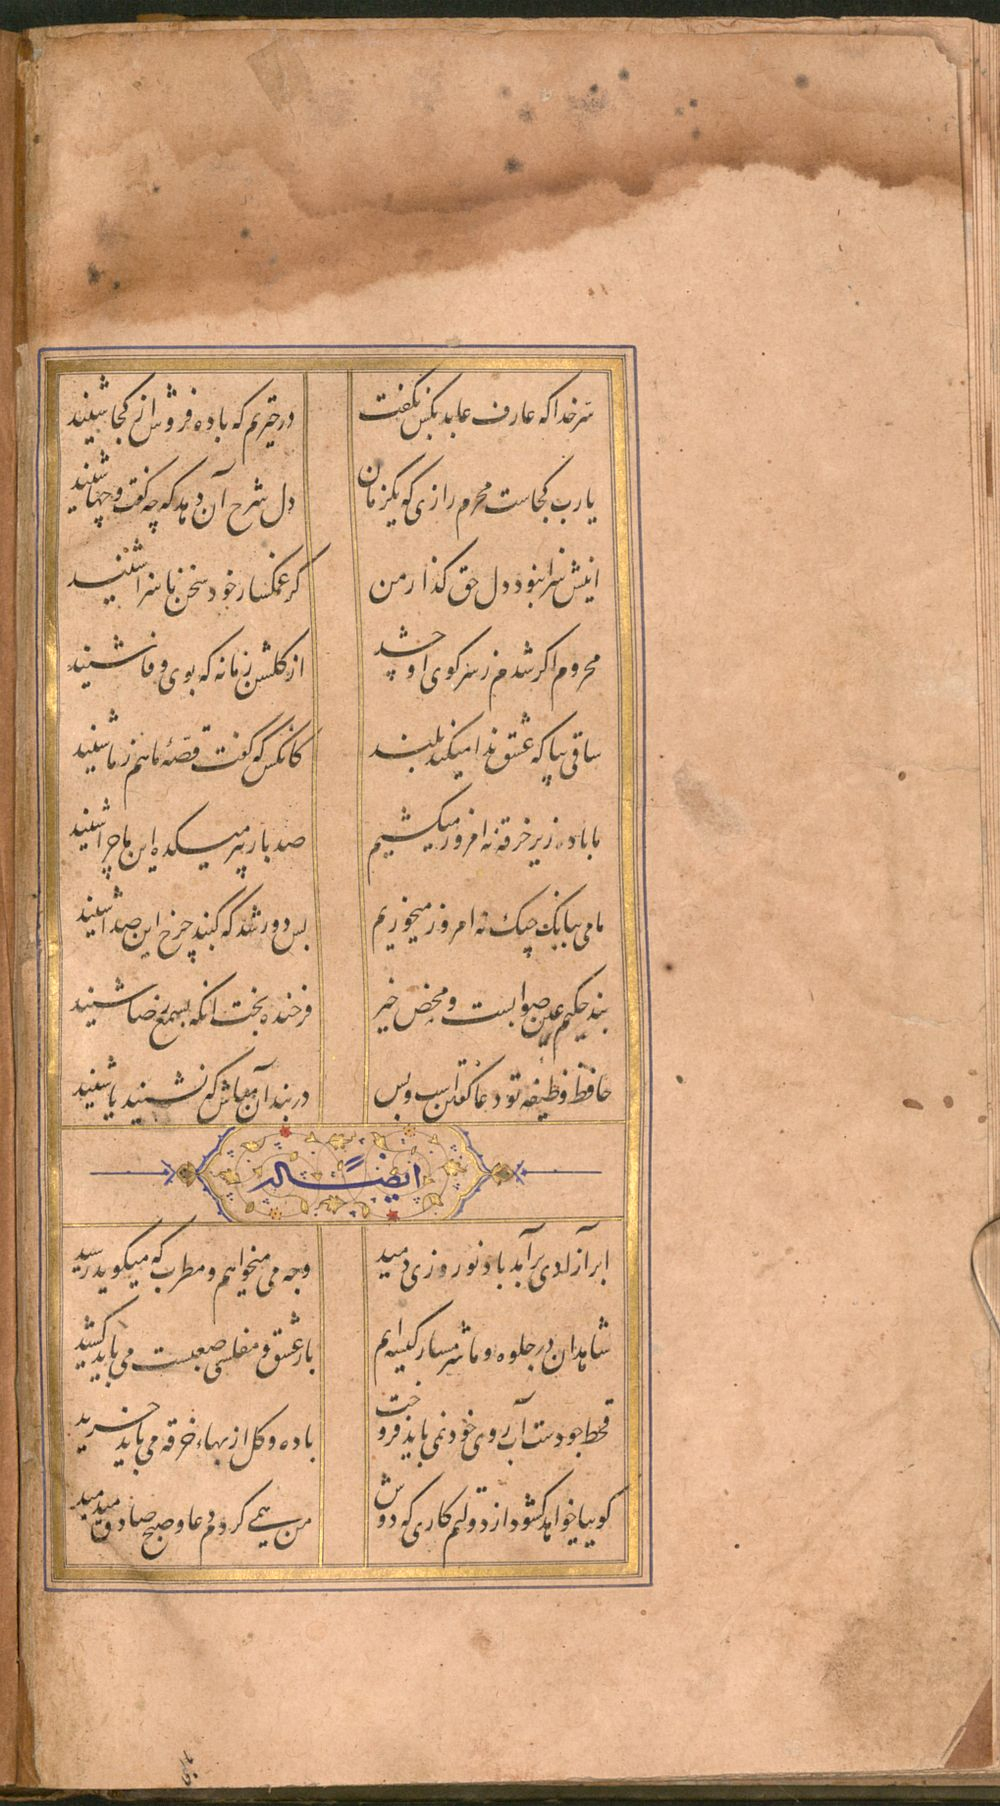 سر خدا که عارف عابد بکس نکفت در حیرتم که باده فروش از کجا شنید
یا رب کجاست محرم رازی که یکزمان دل شرح آن دهد که چه کفت و چها شنید
اینش سزا نبود دل حق کذار من کز غمکسار خود سخن ناسزا شنید
محروم اکر شدم ز سر کوی او چه شد از کلشن زمانه که بوی وفا شنید
ساقی بیا که عشق ندا میکند بلند کانکس که کفت قصهٔ ما هم ز ما شنید
ما باده زیر خرقه نه امروز میکشیم صد بار پیر میکده این ماجرا شنید
ما می ببانک چنک نه امروز میخوریم بس دور شد که کنبد چرخ این صدا شنید
پند حکیم عین صوابست و محض خیر فرخنده بخت انکه بسمع رضا شنید
حافظ وظیفه تو دعا کفتن است و بس در بند آن مباش که نشنید یا شنید
ایضًا له
ابر آزادی برآمد باد نوروزی دمید وجه می میخواهم و مطرب که میکوید رسید
شاهدان در جلوه و ما شرمسار کیسه ایم بار عشق و مفلسی صعبست می باید کشید
قحط جودست آب روی خود نمی باید فروخت باده و کل از بهاء خرقه می باید خرید
کوییا خواهد کشود از دولتم کاری که دوش من همی کردم دعا و صبح صادق میدمید